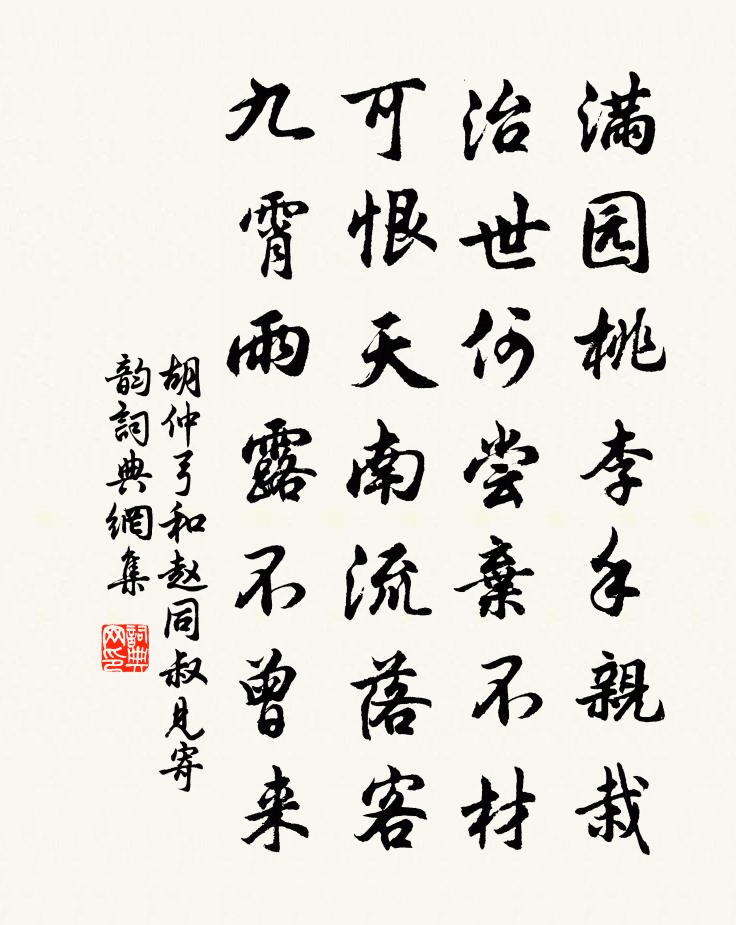 满园桃李手親栽
治世何尝棄不材
可恨天南流落客
九霄雨露不曾来
胡仲弓和赵同叔見寄
韵詞典網集
詞典网印